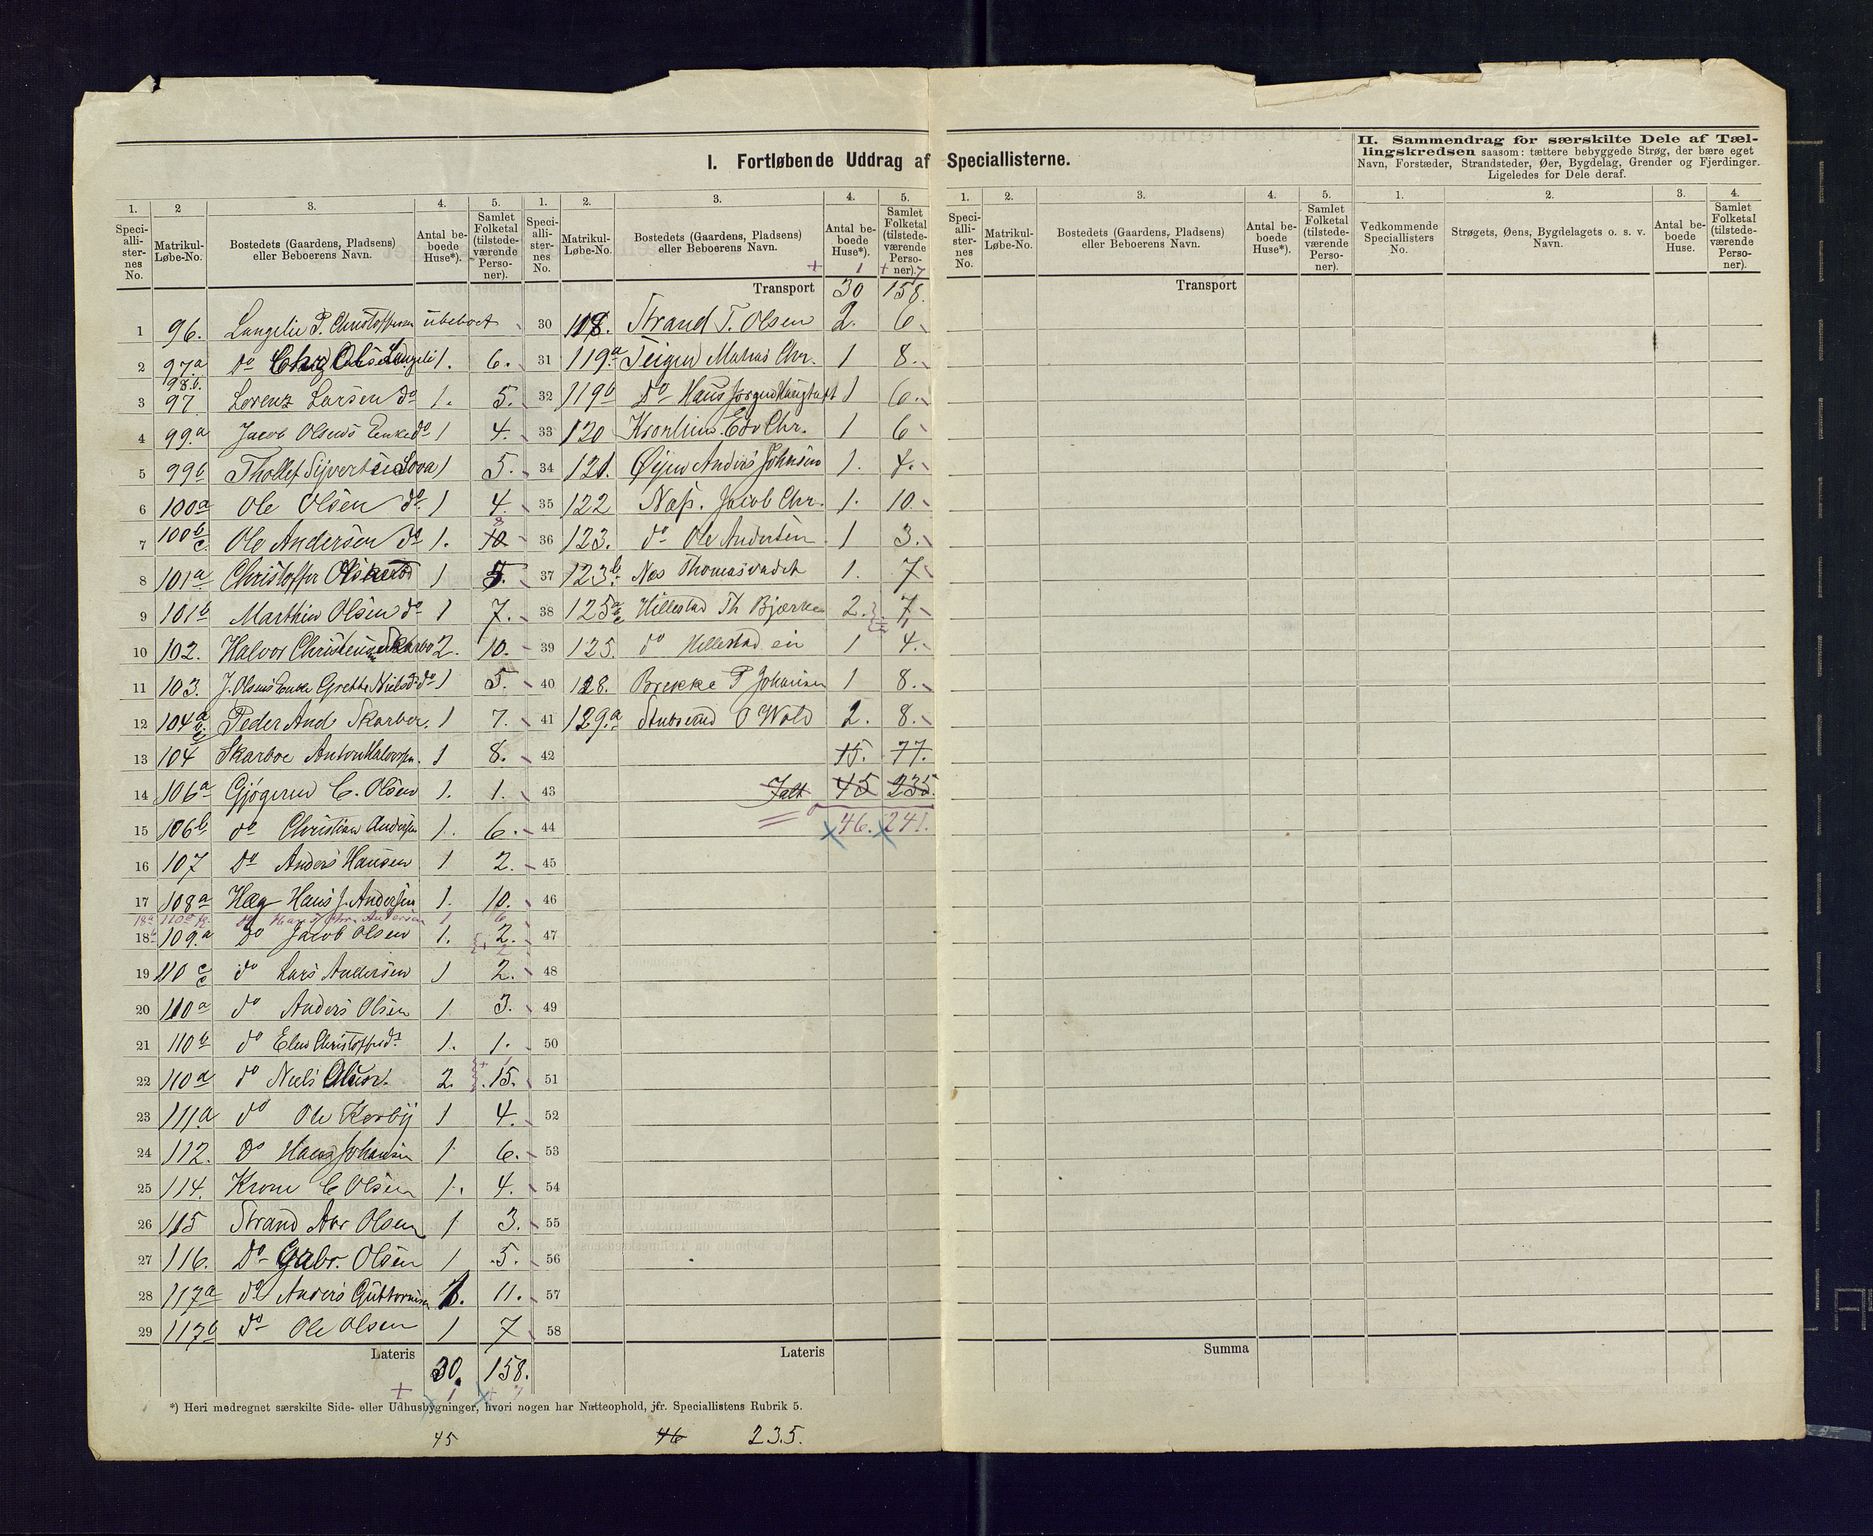 I. Fortløbende Uddrag af Speciallisterne.
II. Sammendrag for særskilte Dele af Tællingskredsen saasom: tættere bebyggede Strøg, der bære eget Navn, Forstæder, Strandsteder, Øer, Bygdelag, Grender og Fjerdinger. Ligeledes for Dele deraf.
1. 2 3. 4. 5. 1. 2. 3. 4. 5. 1. 2. 3. 4. 5. 1. 2. 3. 4.
Speciallisternes No. Matrikul-Løbe-No. Bostedets (Gaardens, Pladsens) eller Beboerens Navn. Antal beboede Huse*). Samlet Folketal (tilstedeværende Personer).
Speciallisternes No. Matrikul-Løbe-No. Bostedets (Gaardens, Pladsens) eller Beboerens Navn. Antal beboede Huse*). Samlet Folketal (tilstedeværende Personer).
Speciallisternes No. Matrikul-Løbe-No. Bostedets (Gaardens, Pladsens) eller Beboerens Navn. Antal beboede Huse*). Samlet Folketal (tilstedeværende Personer).
Vedkommende Speciallisters No. Strøgets, Øens, Bygdelagets o. s. v. Navn. Antal beboede Huse. Samlet Folketal (tilstedeværende Personer).
1 96. Langelie P. Christoffersen ubeboet
2 97a 98.b. do Langeli 1. 6.
3 97 Lorenz Larsen do 1. 5.
4 99.a Jacob Olsens Enke do 1 4.
5 99b Thollef Syvertsen Sova 1 5.
6 100a Ole Olsen do 1 4.
7 100b c. Ole Andersen do 1. 10 8
8 101a Christoffer 1 5.
9 101b Marthin Olsen do 1 7.
10 102. Halvor Christensen Skarbo 2. 10.
11 103. J. Olsens Enke Grethe Nielsd. do 1 5.
12 104a b. c Peder And. Skarboe. 1 7.
13 104 Skarboe Anton Halvorsen. 1 8.
14 106a Gjøgeren C. Olsen 1. 1.
15 106b. do Christian Andersen 1. 6.
16 107 Do Anders Hansen 1 2.
17 108a Hæg Hans J. Andersen 1. 10.
18a 110a do Hans J Chr. Andersen 1 6
18b 109.a Do Jacob Olsen 1. 2. 2
19 110 c c do Lars Andersen 1 2.
20 110a do Anders Olsen 1 3.
21 110b do Elen Christoffsd. 1. 1.
22 110a do Niels Olsen. 2. + 1 15.
23 111a do Ole Korby 1 4.
24 112. Do Hans Johansen 1. 6.
25 114. Krone C Olsen 1. 4.
26 115 Strand Abr Olsen 1 3.
27 116. Do Gabr. Olsen 1 5.
28 117a do Anders Guttormsen 1. 11.
29 117b do Ole Olsen 1 7
Lateris 30. 158.
+ 1 + 7
+ 1 + 7
Transport 30 158.
30 118. Strand T. Olsen 2. 6
31 119a Teigen Mathias Chr. 1 8.
32 119b Do Hans Jørgen Haugstvedt 1 6.
33 120 Kronlien Edv Chr. 1 6
34 121. Øyen Anders Johnsen 1. 4.
35 122 Næs. Jacob Chr. 1. 10.
36 123. do Ole Andersen 1 3.
37 123b. Næs Thomasvadet 1. 7
38 125a b c Hillestad Th Bjærke 2. 7
39 125. do Hillestadein 1 4.
40 128. Brekke P Johansen 1 8.
41 129.a Stubsund O Wold 2. 8.
42 15. 77.
43 Ialt 45 235.
44 46. 241.
45
46
47
48
49
50
51
52
53
54
55
56
57
58
Lateris
Transport
Summa
*) Heri medregnet særskilte Side- eller Udhusbygninger, hvori nogen har Natteophold, jfr. Speciallistens Rubrik 5.
45 46 235.